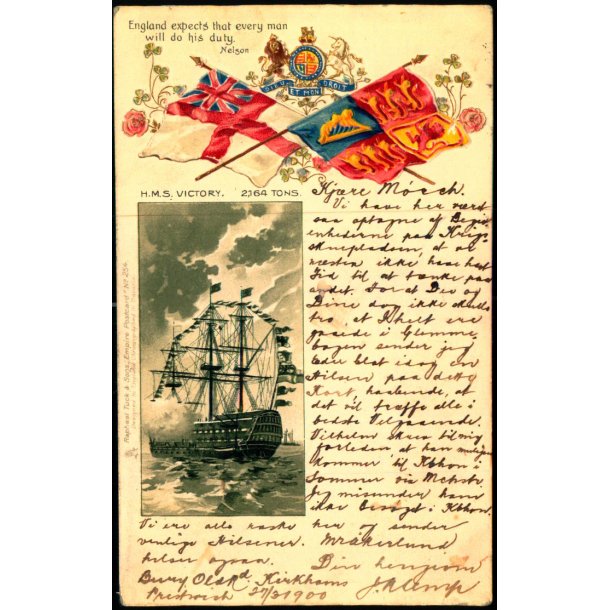 England expects that every man
will do his duty.
Nelson
DIEU ET MON DROIT
H.M.S. VICTORY. 2,164 TONS.
Raphael Tuck & Sons' "Empire" Postcard No 254.
Kjære Mösch.
Vi have her været
saa optagne af Begiv-
enhederne paa Krigs-
skuepladsen, at vi
næsten ikke have havt
Tid til at tænke paa
andet. For at De og
Dine dog ikke skulle
tro, at I helt ere
gaaede i Glemme
bogen sender jeg
Eder blot idag en
Hilsen paa dette
Kort, haabende, at
det vil træffe alle i
bedste Velgaaende.
Vilhelm skrev til mig
forleden at han muligens
kommer til Kbhvn i
Sommer via Mchstr.
Jeg misunder ham
Besøget i Kbhvn.
Vi ere alle raske her og sender
venlige Hilsener.
hilser ogsaa. Din hengivne
Bury Old Rd. Kirkhams
Prestwich 1900